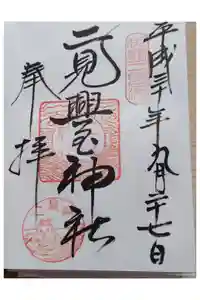 平成三十年九月二十七日
二見興玉神社
奉拝